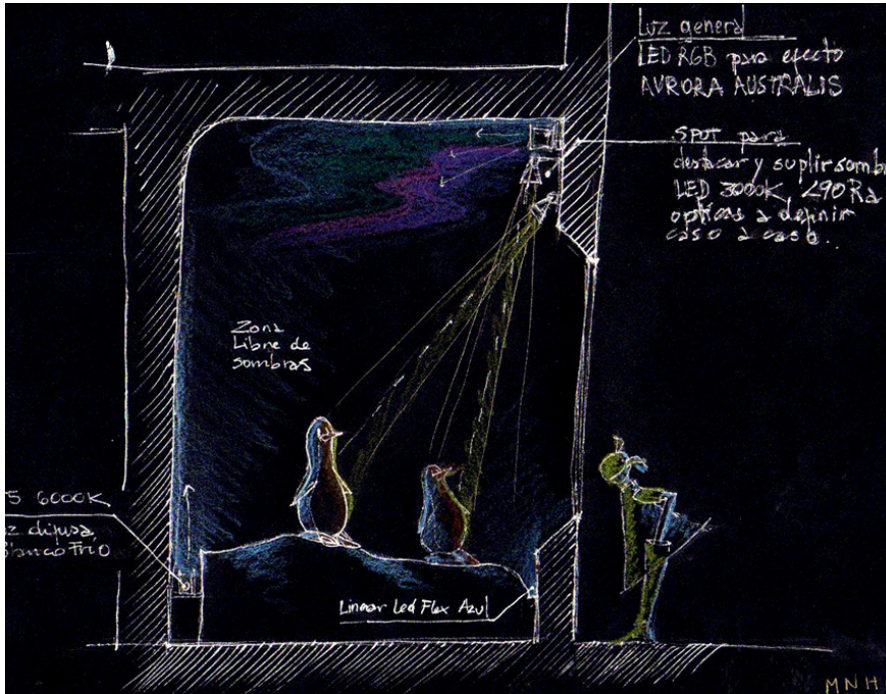 Luz general
LED RGB para efecto
AURORA AUSTRALIS
SPOT para
destacar y suplir sombr
LED 3000K, <90 Ra
opticas a definir
caso a caso.
Zona
Libre de
sombras
5 6000K
z difusa
Blanco Frio
Linear Led Flex Azul
MNH